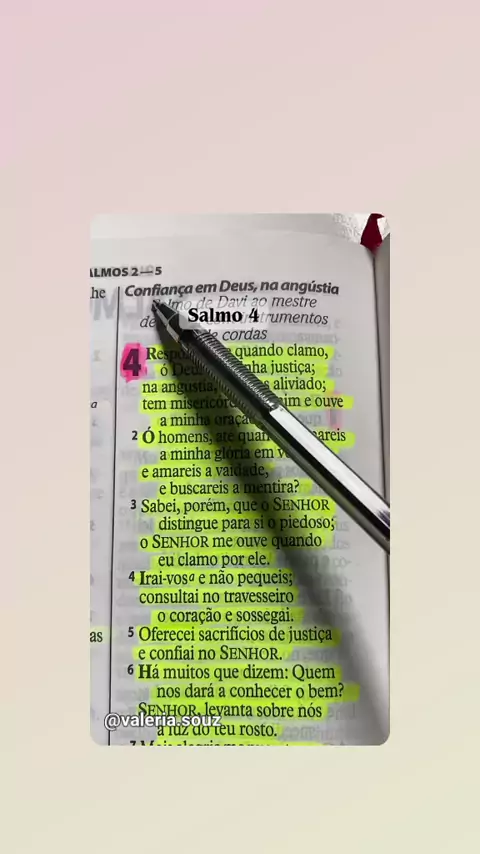 ALMOS 2—5
he
Confiança em Deus, na angústia
de Davi ao mestre
Salmo 4
de cordas
4 quando clamo,
justiça;
na angústia, aliviado;
tem e ouve
a minha oração
2 Ó homens, até
a minha glória em
e amareis a vaidade,
e buscareis a mentira?
3 Sabei, porém, que o SENHOR
distingue para si o piedoso;
o SENHOR me ouve quando
eu clamo por ele.
4 Irai-vos a e não pequeis;
consultai no travesseiro
o coração e sossegai.
as
5 Oferecei sacrifícios de justiça
e confiai no SENHOR.
6 Há muitos que dizem: Quem
nos dará a conhecer o bem?
SENHOR, levanta sobre nós
a luz do teu rosto.
@valeria.souz